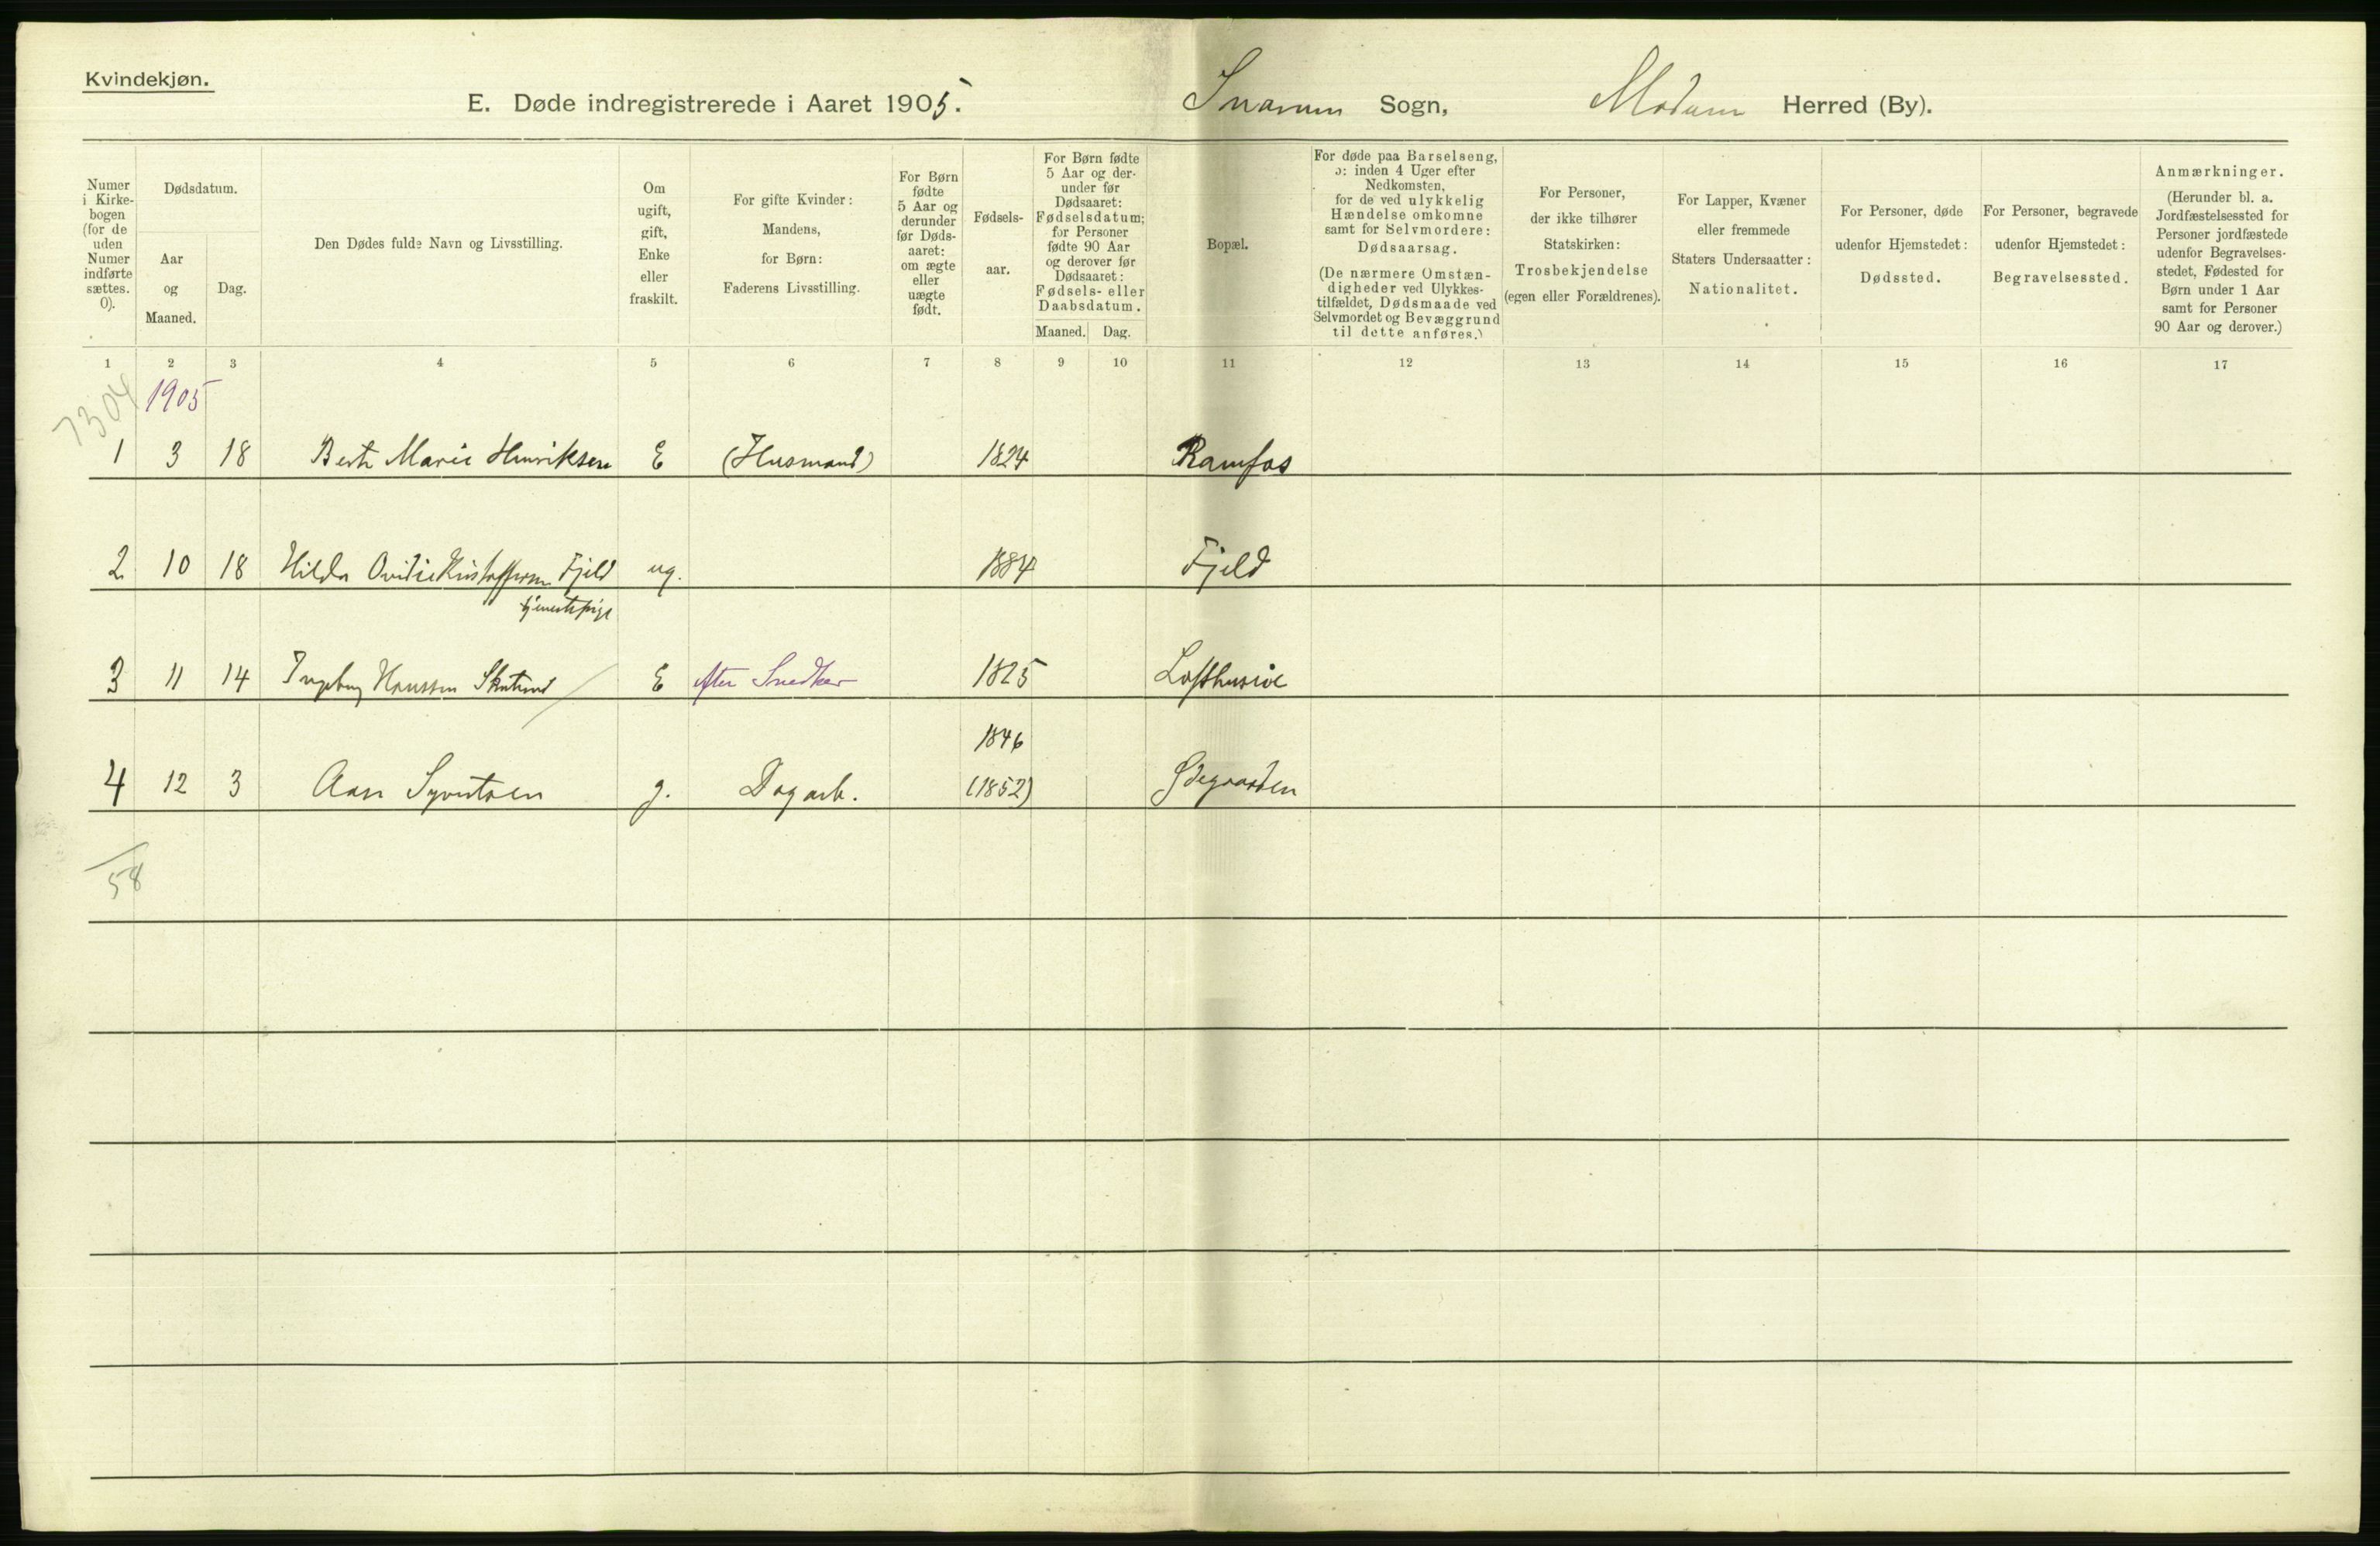 Kvindekjøn.
E. Døde indregistrerede i Aaret 1905. Snarum Sogn, Modum Herred (By).
Numer i Kirke- bogen (for de uden Numer indførte sættes. 0).
Dødsdatum.
Aar og Maaned.
Dag.
Den Dødes fulde Navn og Livsstilling.
Om ugift, gift, Enke eller fraskilt.
For gifte Kvinder: Mandens, for Børn: Faderens Livsstilling.
For Børn fødte 5 Aar og derunder før Døds- aaret: om ægte eller uægte født.
Fødsels- aar.
For Børn fødte 5 Aar og der- under før Dødsaaret: Fødselsdatum; for Personer fødte 90 Aar og derover før Dødsaaret: Fødsels- eller Daabsdatum.
Maaned. Dag.
Bopæl.
For døde paa Barselseng, ɔ: inden 4 Uger efter Nedkomsten, for de ved ulykkelig Hændelse omkomne samt for Selvmordere: Dødsaarsag. (De nærmere Omstæn- digheder ved Ulykkes- tilfældet, Dødsmaade ved Selvmordet og Bevæggrund til dette anføres.)
For Personer, der ikke tilhører Statskirken: Trosbekjendelse (egen eller Forældrenes).
For Lapper, Kvæner eller fremmede Staters Undersaatter: Nationalitet.
For Personer, døde udenfor Hjemstedet: Dødssted.
For Personer, begravede udenfor Hjemstedet: Begravelsessted.
Anmærkninger. (Herunder bl. a. Jordfæstelsessted for Personer jordfæstede udenfor Begravelses- stedet, Fødested for Børn under 1 Aar samt for Personer 90 Aar og derover.)
1 2 3 4 5 6 7 8 9 10 11 12 13 14 15 16 17
7304 1905
1 3 18 Berte Marie Henriksen E (Husmand) 1824 Ramfos
2 10 18 Hilda Ovidie Kristoffersen Fjeld ug. 1884 Fjeld
tjenestepige
3 11 14 Ingeborg Hanssen E efter Snedker 1825
1846
4 12 3 Aase Syvertsen g. Dagarb. (1852) Ødegaarden
58